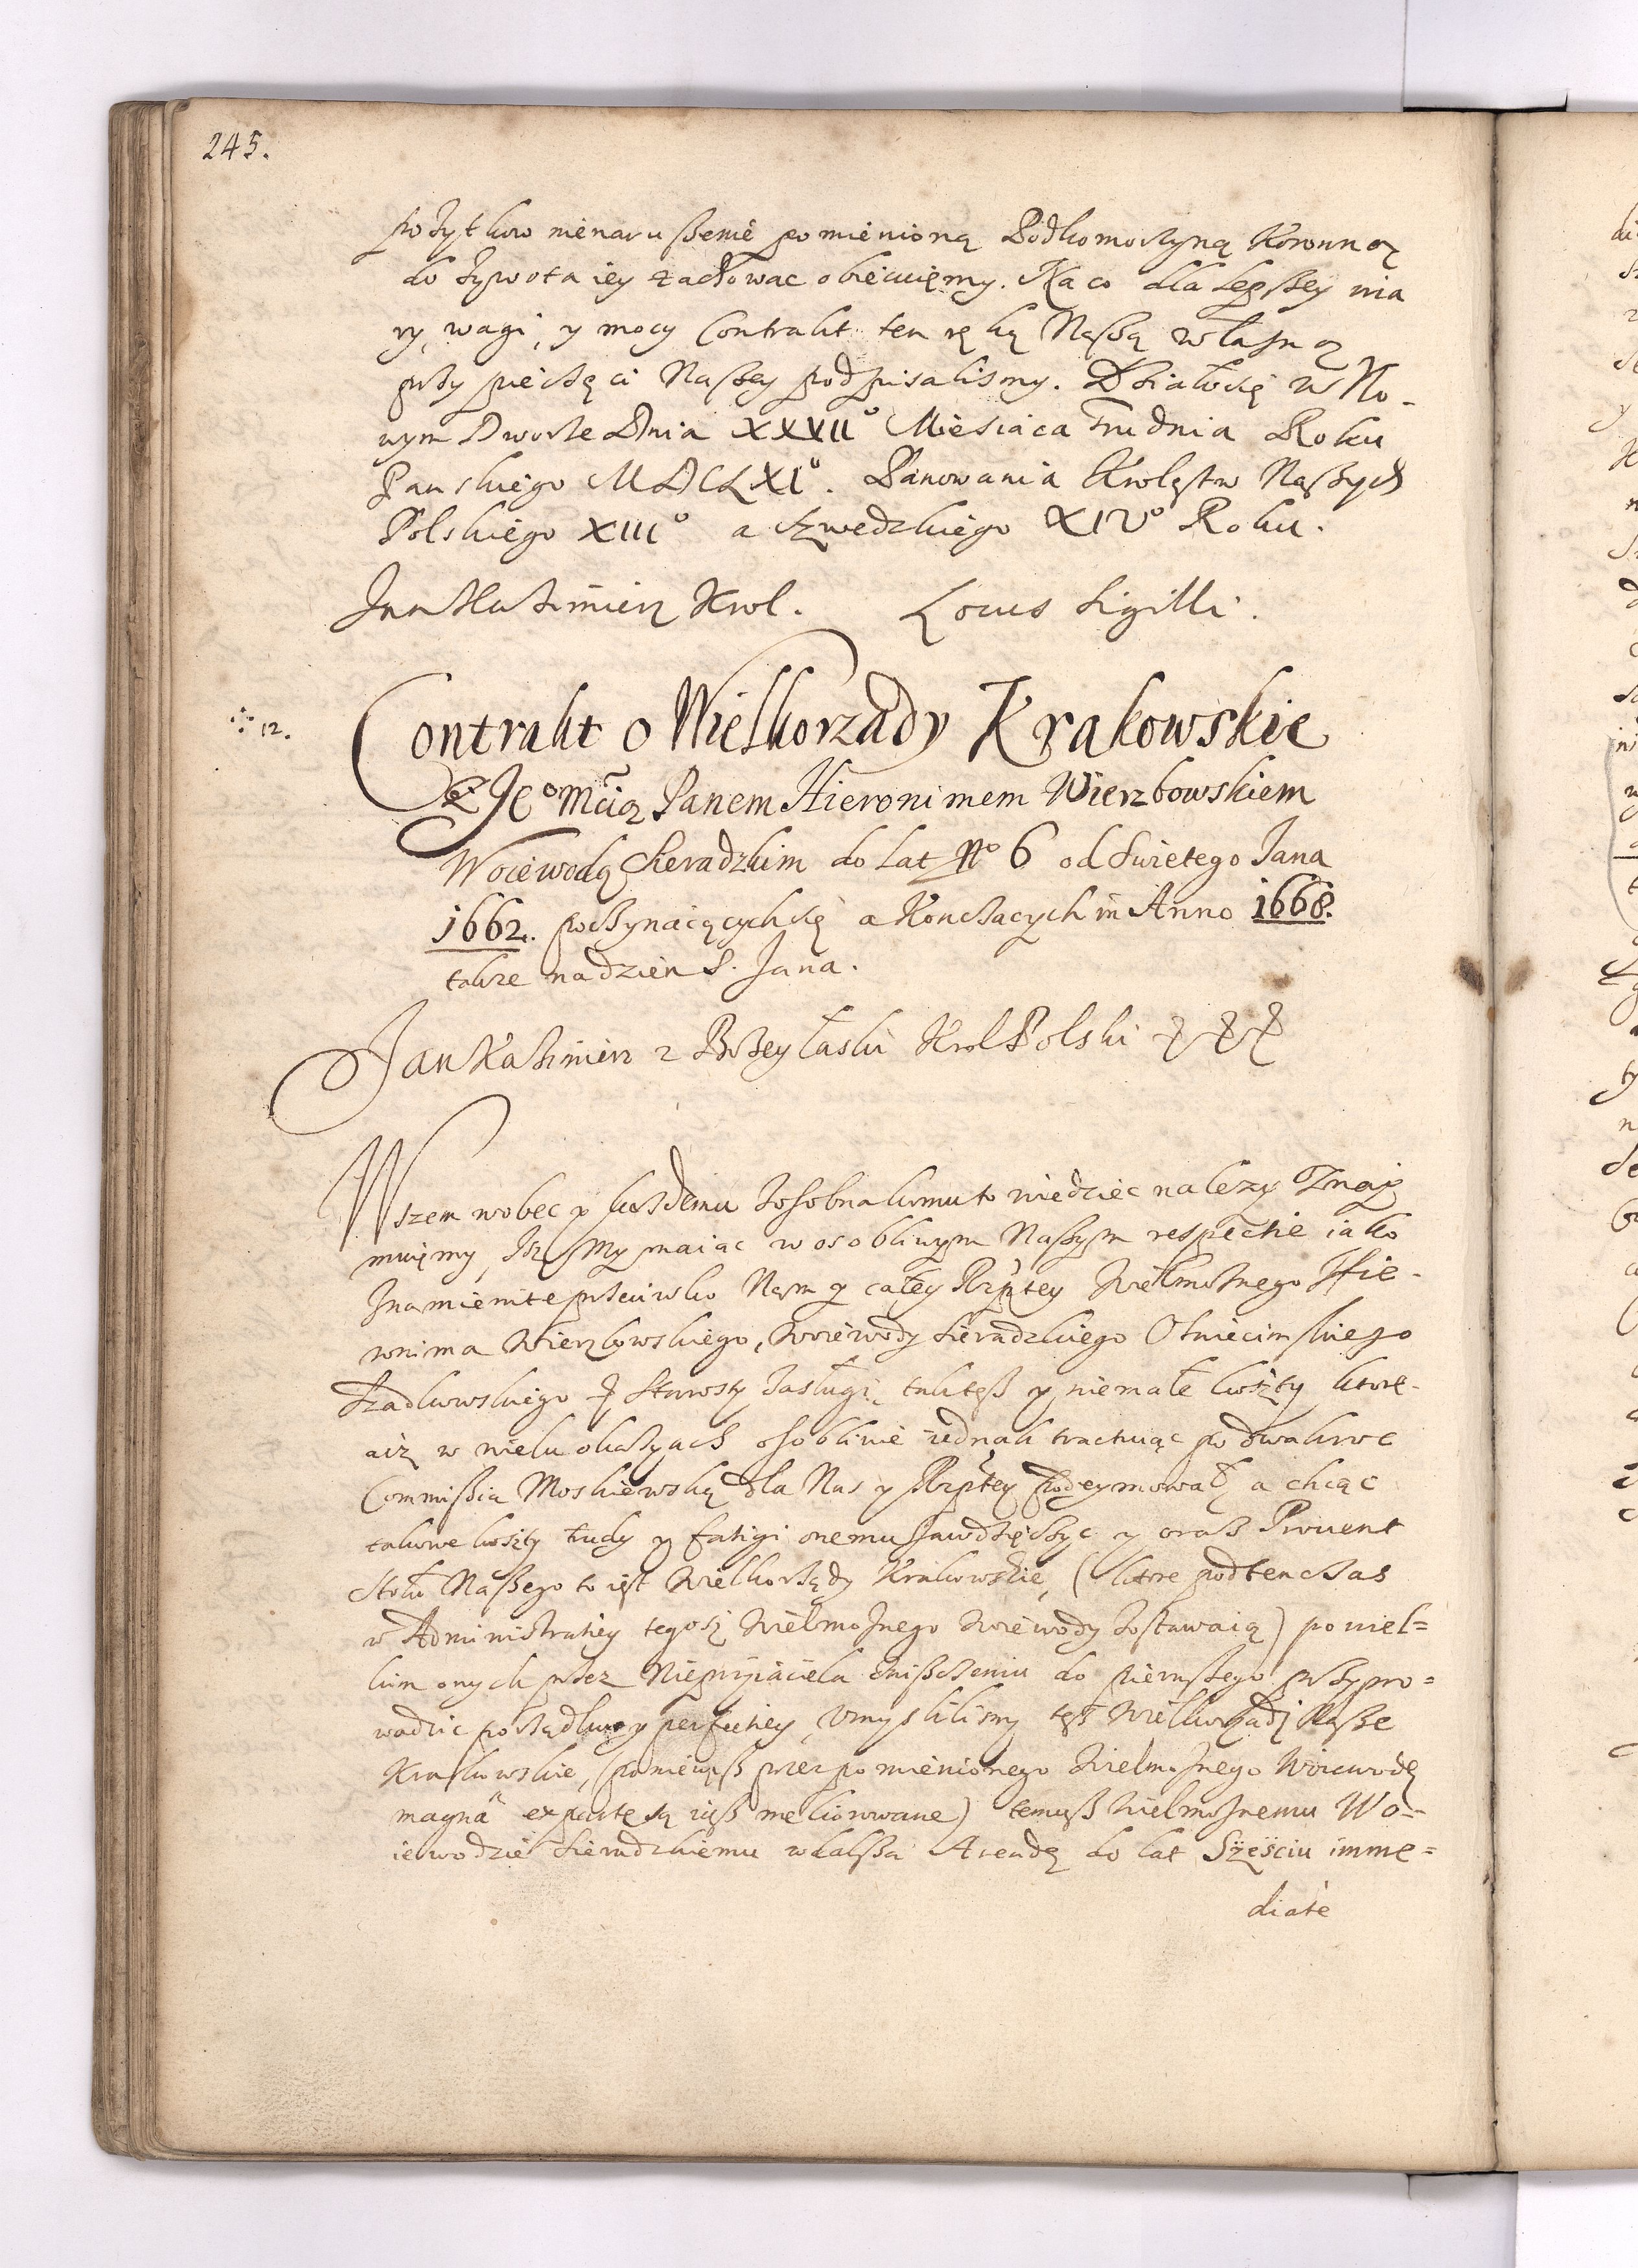 245.
pożytkow nienarußenie pomienioną Podkomorzyną Koronną
do żywota iey zachować obiecuięmy. Na co dla lepßey wia
ry, wagi, y mocy Contrakt ten ręką Naßą własną
przy pieczęci Naßey podpisalismy. Działosię w No-
wym Dworze Dnia XXVII° Miesiąca Grudnia Roku
Panskiego MDCLXI°. Panowania Krolęstw Naßych
Polskiego XIII° a Szwedzkiego XIV° Roku.
Jan Kazimierz Krol. Locus Sigilli.
12.
Contrakt o Wielkorzady Krakowskie
z Je°Mcią Panem Hieronimem Wierzbowskiem
Woiewodą Sieradzkim do Lat N° 6 od Swietego Jana
1662. poczynaiącychsię a Konczacych in Anno 1668.
takze nadzien S. Jana.
Jan Kazimierz z Bożey łaski Krol Polski
Wszem wobec y każdemu zosobna komu to wiedziec nalezy Znaią
muięmy, Isz My maiąc w osobliwym Naßym respectie iako
Znamienite przeciwko Nam y całey Rzptey Wielmożnego Hie-
ronima Wierzbowskiego, Woiewody Sieradzkiego Oswiecimskiego
Szadkowskiego Starosty Zasługi, takteß y niemałe koszty ktore-
aiz w wielu okazyach osobliwie iednak tractuiąc po dwakroc
Commißią Moskiewską dla Nas y Rzptey podeymował, a chcąc
takowe koszty trudy y fatigi onemu zawdzięczyc y oraz Prouent
Stołu Naßego to iest Wielkorządy Krakowskie, (ktore podtenczas
w Administratiey tegosz Wielmożnego Woiewody zostawaią) po wiel=
kim onych przez Nieprzyiaciela znißczeniu do pierwszego przypro=
wadzic porządku y perfectiey, Vmyslilismy teß Wielkorządy Naßze
Krakowskie, (ponieważ przez pomienionego Wielmożnego Woiewodę
magna ex parte są iuß meliorowane) temuß Wielmożnemu Wo-
iewodzie Sieradzkiemu w dalßą Arendę do lat Sześciu imme=
diate